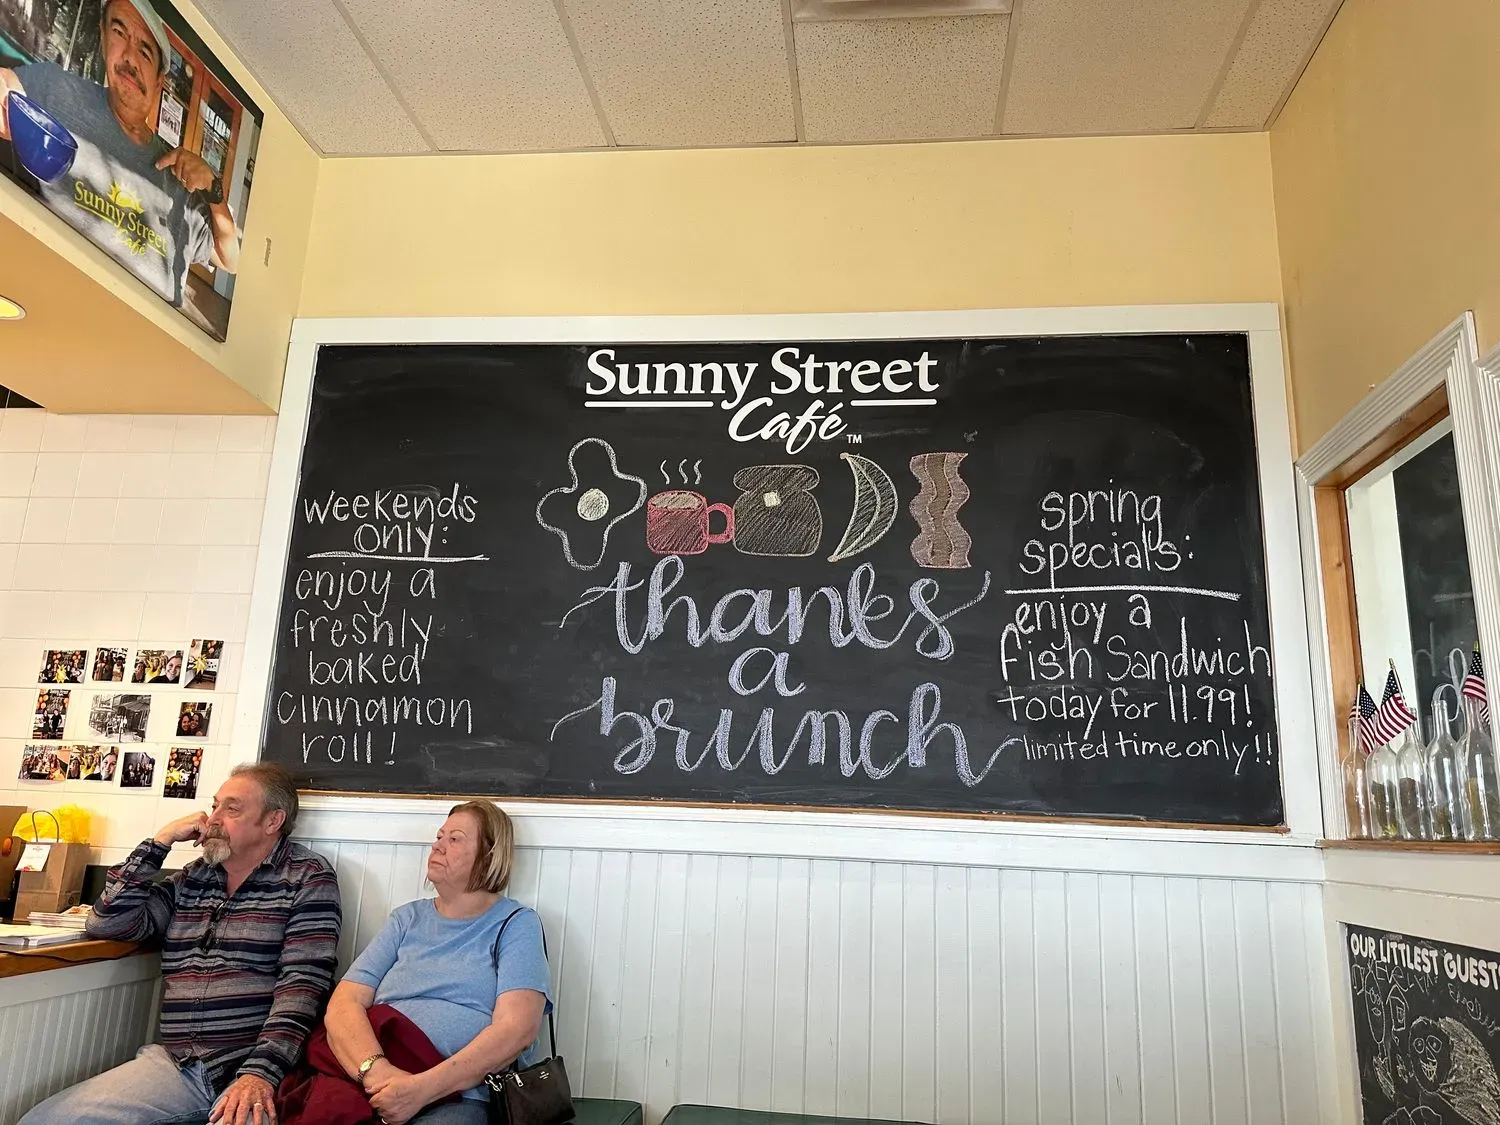 Sunny Street
Café
Sunny Street
Café™
weekends
only:
enjoy a
freshly
baked
cinnamon
roll!
thanks
a
brunch
spring
specials:
enjoy a
fish Sandwich
today for 11.99!
limited time only!!
OUR LITTLEST GUEST